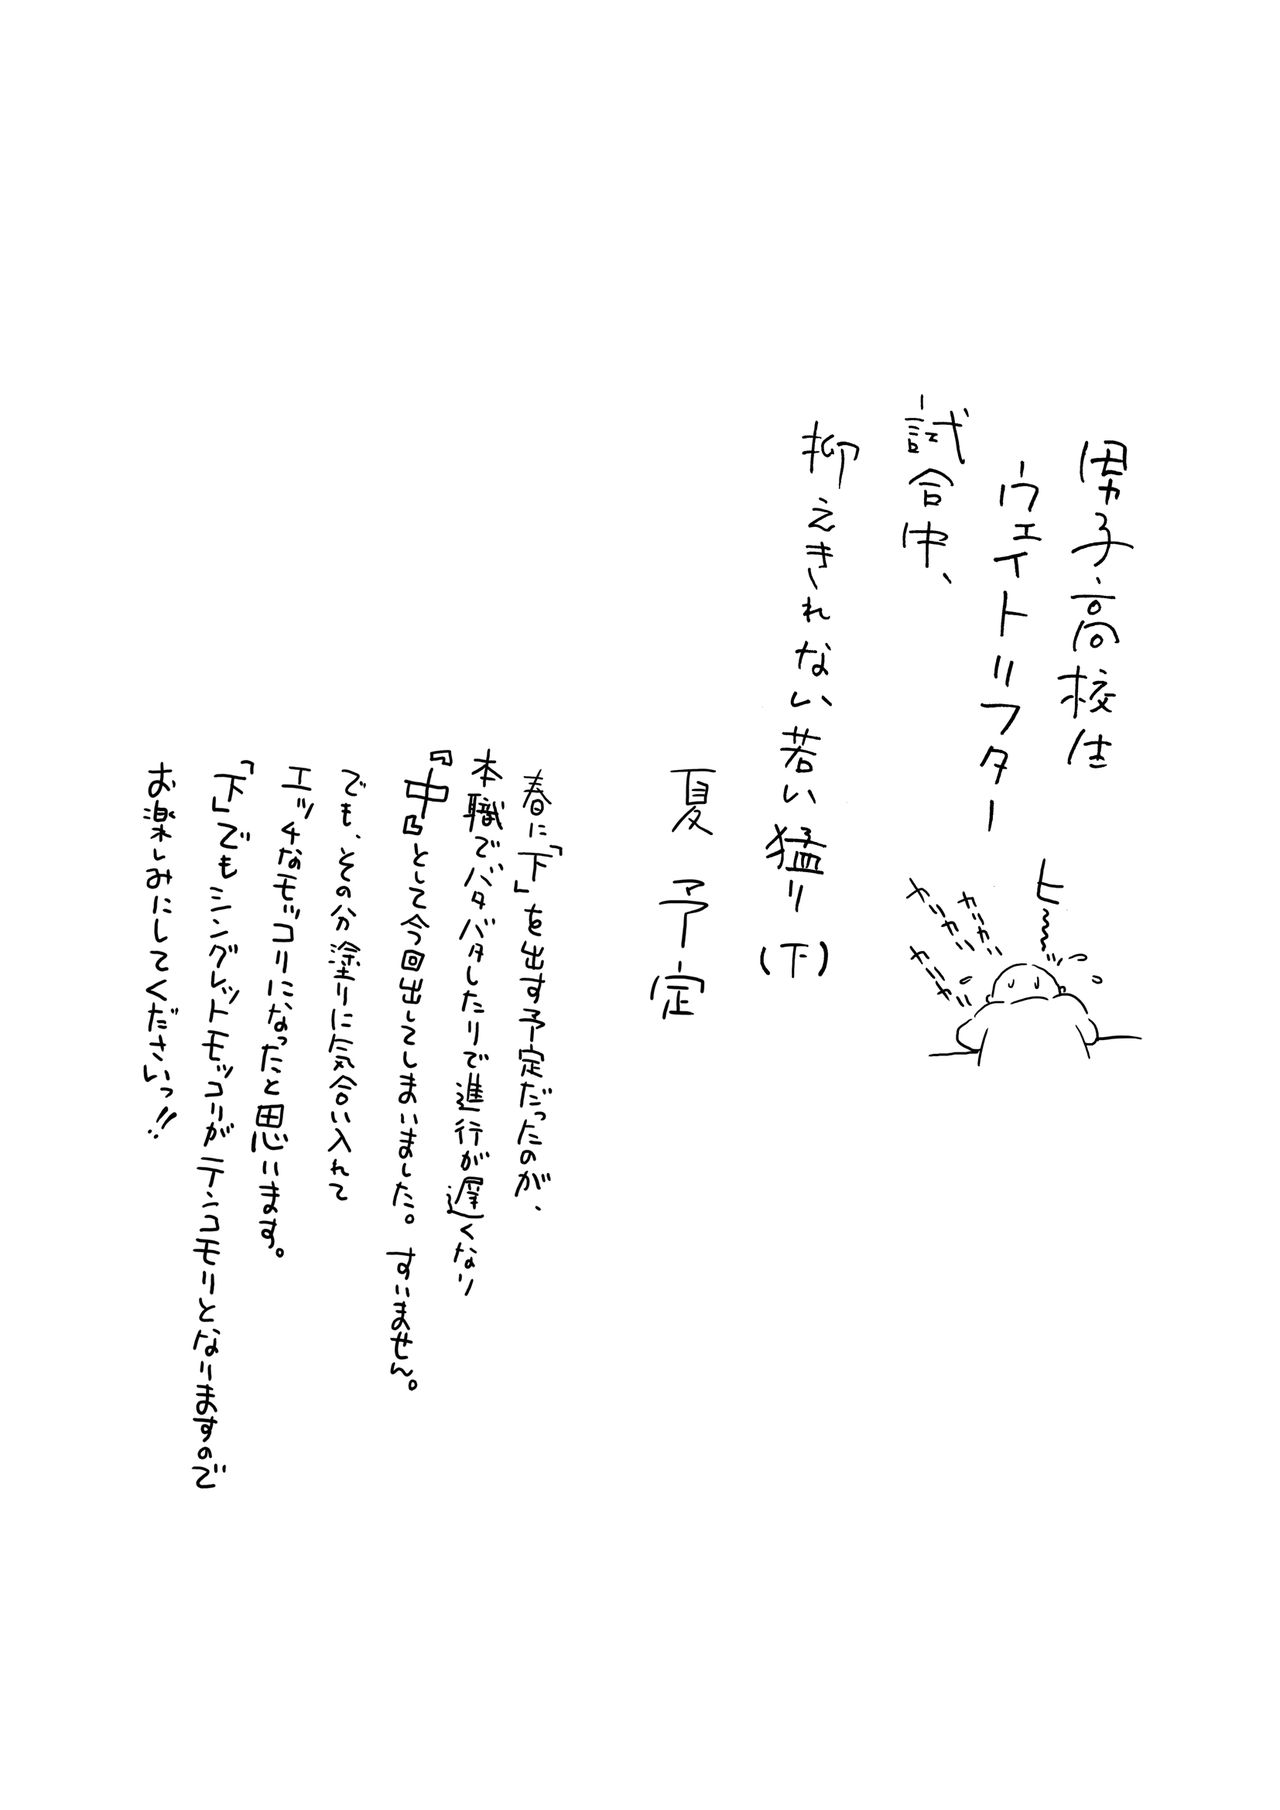 男子高校生
ウェイトリフター
試合中、
抑えきれない若い猛り(下)
夏 予定
ヒ〜
カリカリ
カリカリ
カリカリ
春に「下」を出す予定だったのが、
本職でバタバタしたりで進行が遅くなり
『中』として今回出してしまいました。すいません。
でも、その分塗りに気合い入れて
エッチなモッコリになったと思います。
「下」でもシングレットモッコリがテンコモリとなりますので
お楽しみにしてくださいっ!!